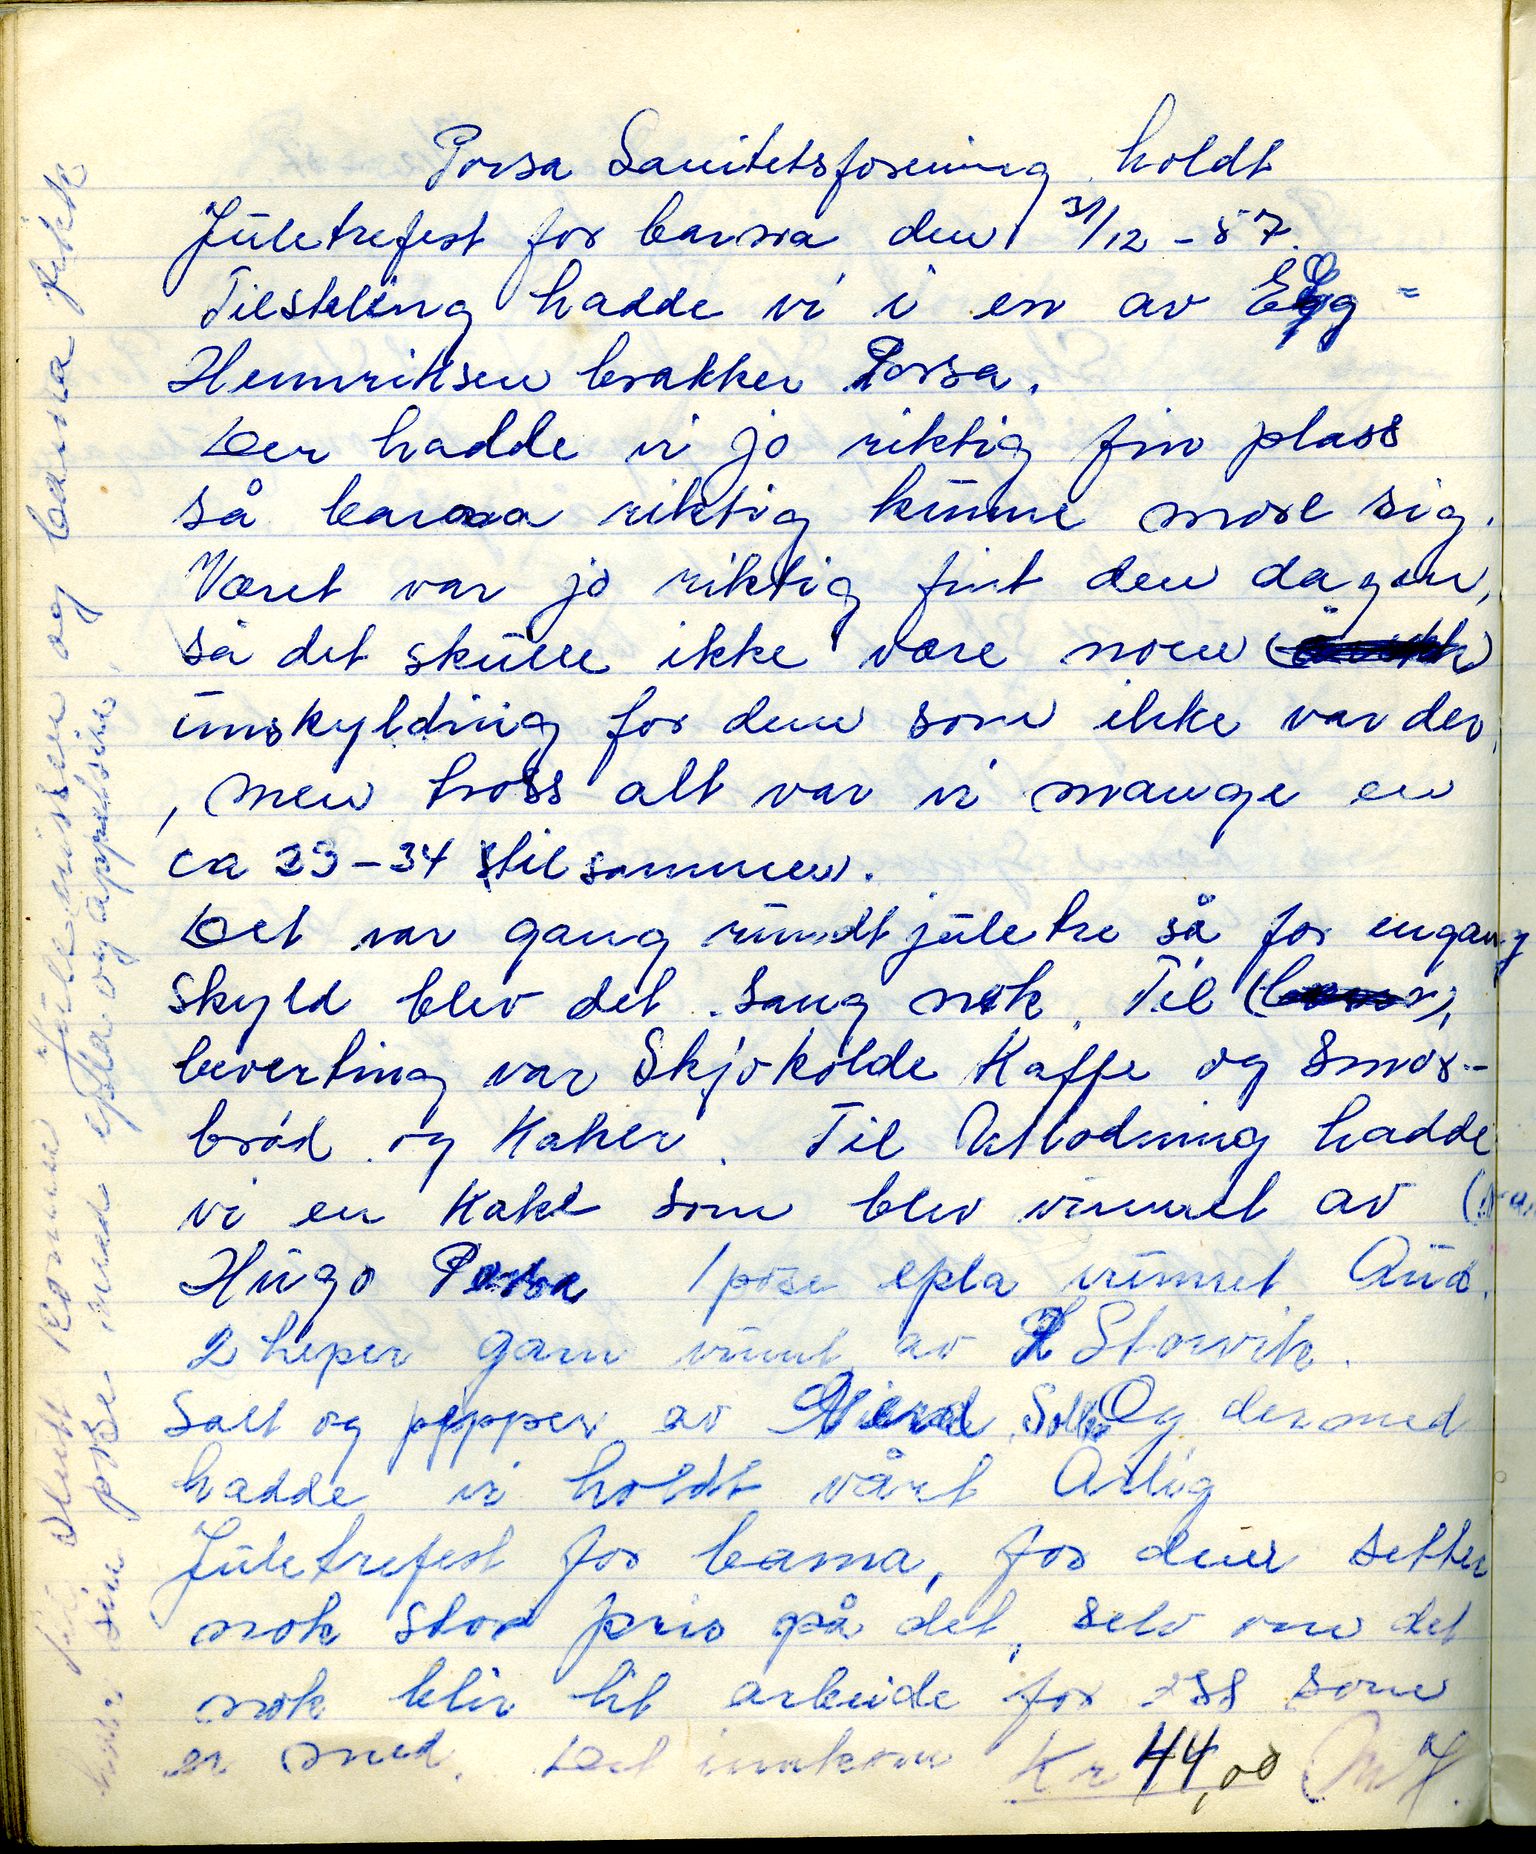 Porsa Sanitetsforening holdt
Juletrefest for barna den 31/12 - 57.
Tilstelling hadde vi i en av Egg =
Hennriksen brakker Porsa.
Der hadde vi jo riktig fin plass
så barna riktig kunne more sig.
Været var jo riktig fint den dagen,
så det skulle ikke være noen
unskylding for dem som ikke var der
, men tross alt var vi mange en
ca 33-34 til sammen.
Det var gang rundt juletre så for engang
skyld blev det sang nok. Til
beverting var Skjokolde Kaffe og smør-
brød og Kaker. Til Utlodning hadde
vi en Kake som blev vunnet av
Hugo Porsa 1 pose epla vunnet Aud.
2 heper garn vunt av H Storvik.
Salt og pepper av Og dermed
hadde vi holdt vårt Årlig
Juletrefest for barna, for dem setter
nok stor pris på det, selv om det
nok blir lit arbeide for oss som
er med. Det innkom Kr 44,00
Till slutt kommer Julenissen og barna fikk
hver sin pose med epla og appelsin.